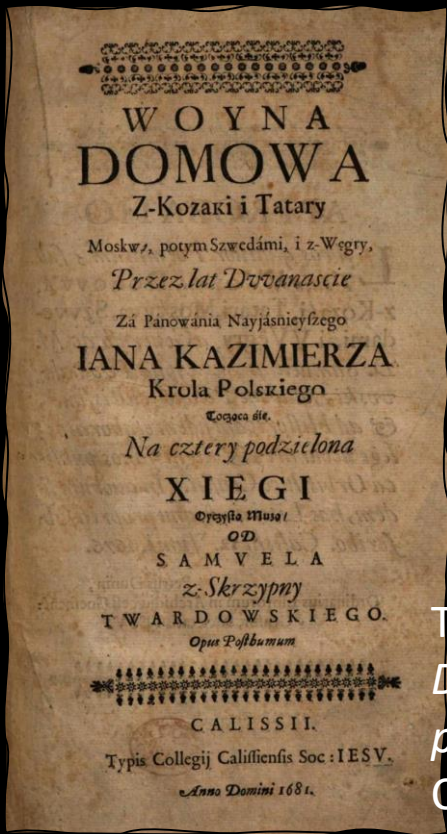 WOYNA
DOMOWA
Z-Kozaki i Tatary
Moskwą, potym Szwedámi, i z-Węgry,
Przez lat Dwanascie
Zá Pánowánia Nayjásnieyſzego
IANA KAZIMIERZA
Krola Polskiego
Tocząca się.
Na cztery podzielona
XIĘGI
Oyczystą Muzą/
OD
SAMVELA
z-Skrzypny
TWARDOWSKIEGO.
Opus Poſthumum
CALISSII.
Typis Collegij Caliſſienſis Soc: IESV.
Anno Domini 1681.
T
D
p
C